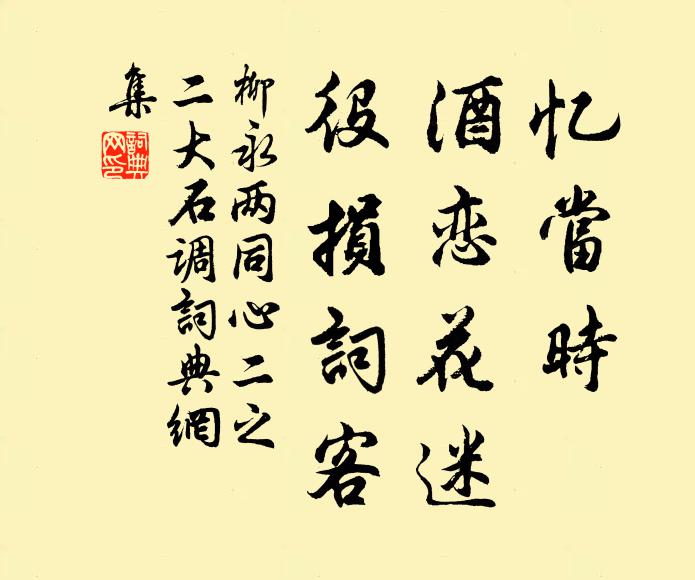 忆當時
酒恋花迷
役損詞客
柳永两同心二之
二大石调詞典網
集
詞典網印